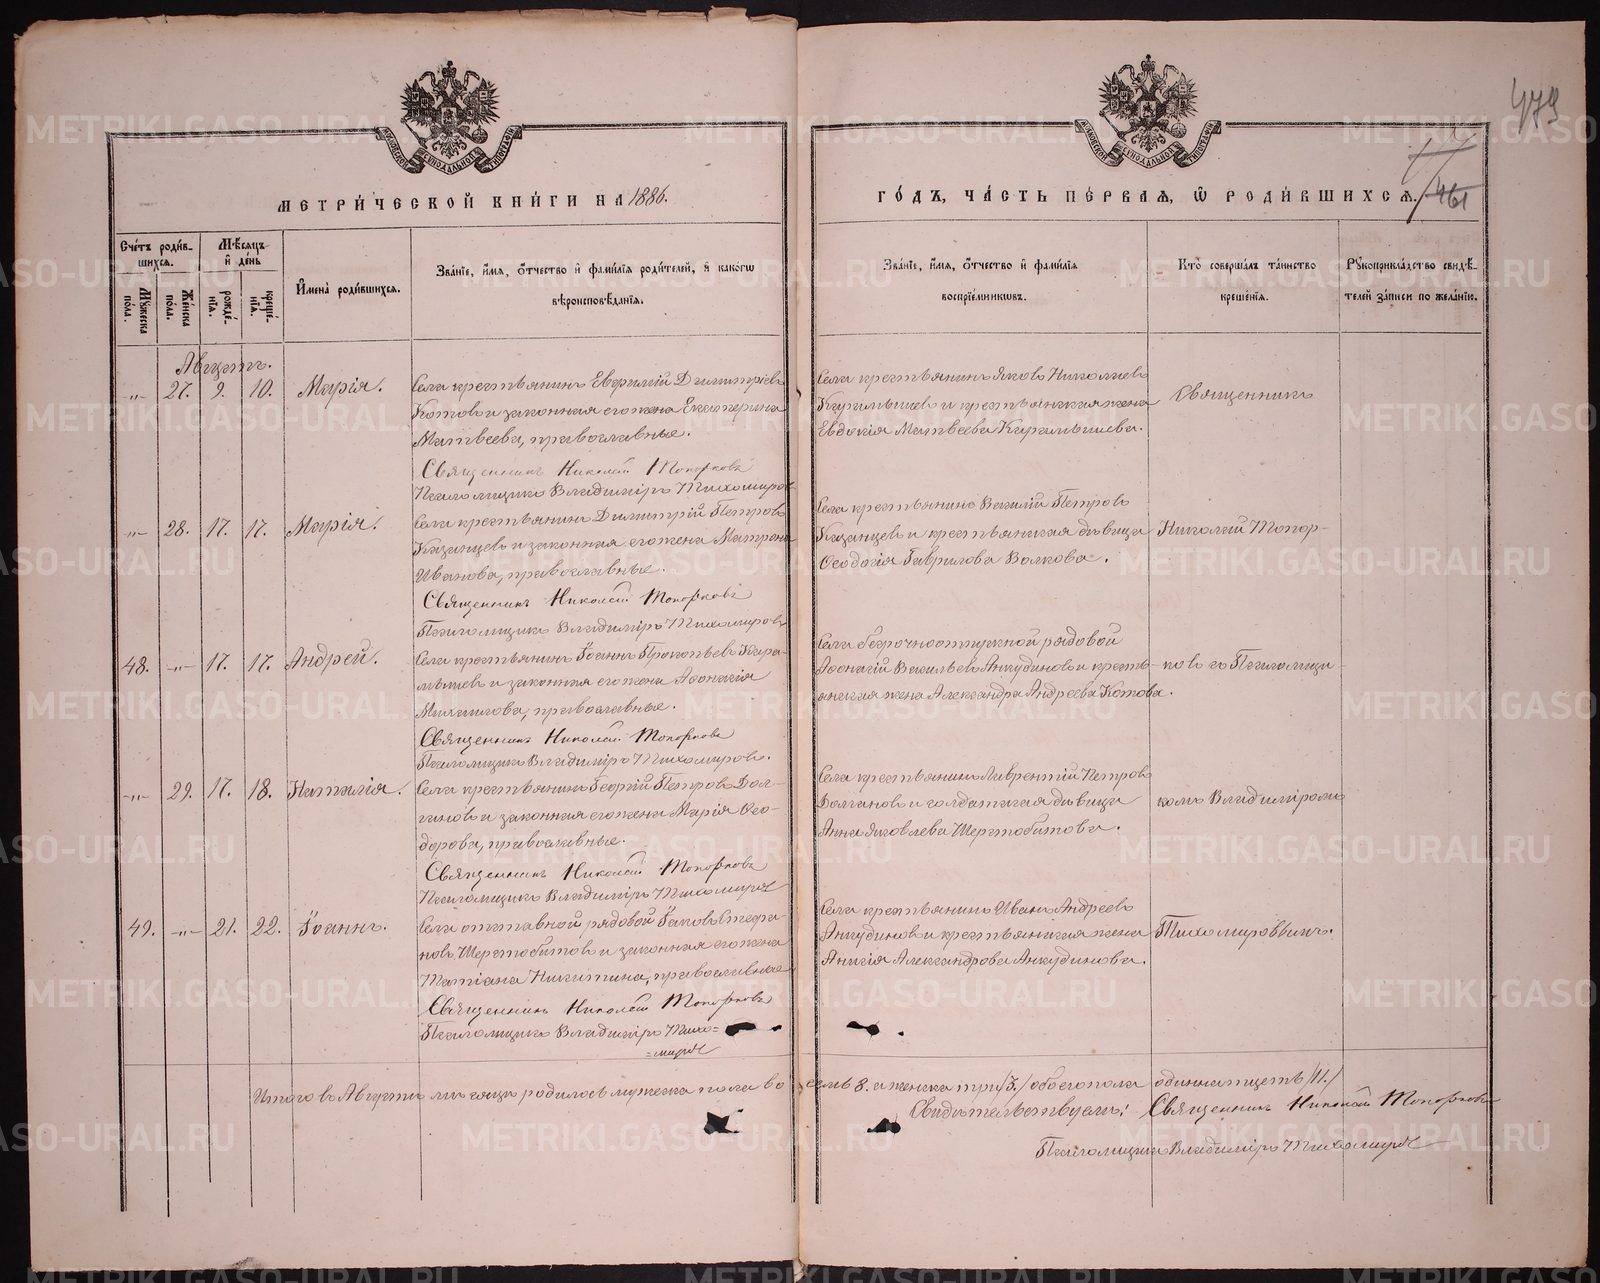 МЕТРИ́ЧЕСКОЙ КНИ́ГИ НА 1886.
ГО́ДЪ, ЧА́СТЬ ПЕ́РВАЯ, Ѿ РОДИ́ВШИХСЯ.
479
461
МОСКОВСКОЙ СѴНОДАЛЬНОЙ ТИПОГРАФІИ
МОСКОВСКОЙ СѴНОДАЛЬНОЙ ТИПОГРАФІИ
Сче́тъ роди́вшихся.
Му́жеска по́ла.
Же́нска по́ла.
Мѣ́сяцъ и҆ де́нь
рожде́нїя.
креще́нїя.
И҆мена̀ роди́вшихся.
Зва́нїе, и҆́мя, ѻ҆́тчество и҆ фами́лїя роди́телей, и҆ како́гѡ вѣроисповѣ́данїя.
Зва́нїе, и҆́мя, ѻ҆́тчество и҆ фами́лїя воспрїе́мникѡвъ.
Кто̀ соверша́лъ та́инство креще́нїя.
Рꙋкоприкла́дство свидѣ́телей за́писи по жела́нїю.
Августъ.
-"- 27. 9. 10. Марія.
Села крестьянинъ Евфимій Димитріевъ
Котовъ и законная его жена Екатерина
Матвеева, православные.
Священникъ Николай Топорковъ
Псаломщикъ Владиміръ Тихомировъ
Села крестьянинъ Яковъ Николаевъ
Карамышевъ и крестьянская жена
Евдокія Матвеева Карамышева.
Священникъ
-"- 28. 17. 17. Марія.
Села крестьянинъ Димитрій Петровъ
Казанцевъ и законная его жена Матрона
Иванова, православные.
Священникъ Николай Топорковъ
Псаломщикъ Владиміръ Тихомировъ
Села крестьянинъ Василій Петровъ
Казанцевъ и крестьянская дѣвица
Ѳеодосія Гаврилова Волкова.
Николай Топор-
48. -"- 17. 17. Андрей.
Села крестьянинъ Іоаннъ Прокопьевъ Кара-
мышевъ и законная его жена Аѳанасія
Михаилова, православные.
Священникъ Николай Топорковъ
Псаломщикъ Владиміръ Тихомировъ.
Села безсрочноотпускной рядовой
Аѳанасій Васильевъ Анкудиновъ и кресть-
янская жена Александра Андреева Котова.
ковъ съ Псаломщи-
-"- 29. 17. 18. Наталія.
Села крестьянинъ Георгій Петровъ Дол-
гановъ и законная его жена Марія Ѳео-
дорова, православные.
Священникъ Николай Топорковъ
Псаломщикъ Владиміръ Тихомировъ
Села крестьянинъ Лаврентій Петровъ
Долгановъ и солдатская дѣвица
Анна Яковлева Шерстобитова.
комъ Владиміромъ
49. -"- 21. 22. Іоаннъ.
Села отставной рядовой Іаковъ Стефа-
новъ Шерстобитовъ и законная его жена
Татіана Никитина, православные
Священникъ Николай Топорковъ
Псаломщикъ Владиміръ Тихо=
=мировъ
Села крестьянинъ Иванъ Андреевъ
Анкудиновъ и крестьянская жена
Анисія Александрова Анкудинова.
Тихомировымъ.
Итого въ Августѣ мѣсяцѣ родилось мужеска пола восемь 8. а женска три /3./ обоего пола одиннадцать /11./
Свидѣтельствуемъ: Священникъ Николай Топорковъ
Псаломщикъ Владиміръ Тихомировъ
METRIKI.GASO-URAL.RU